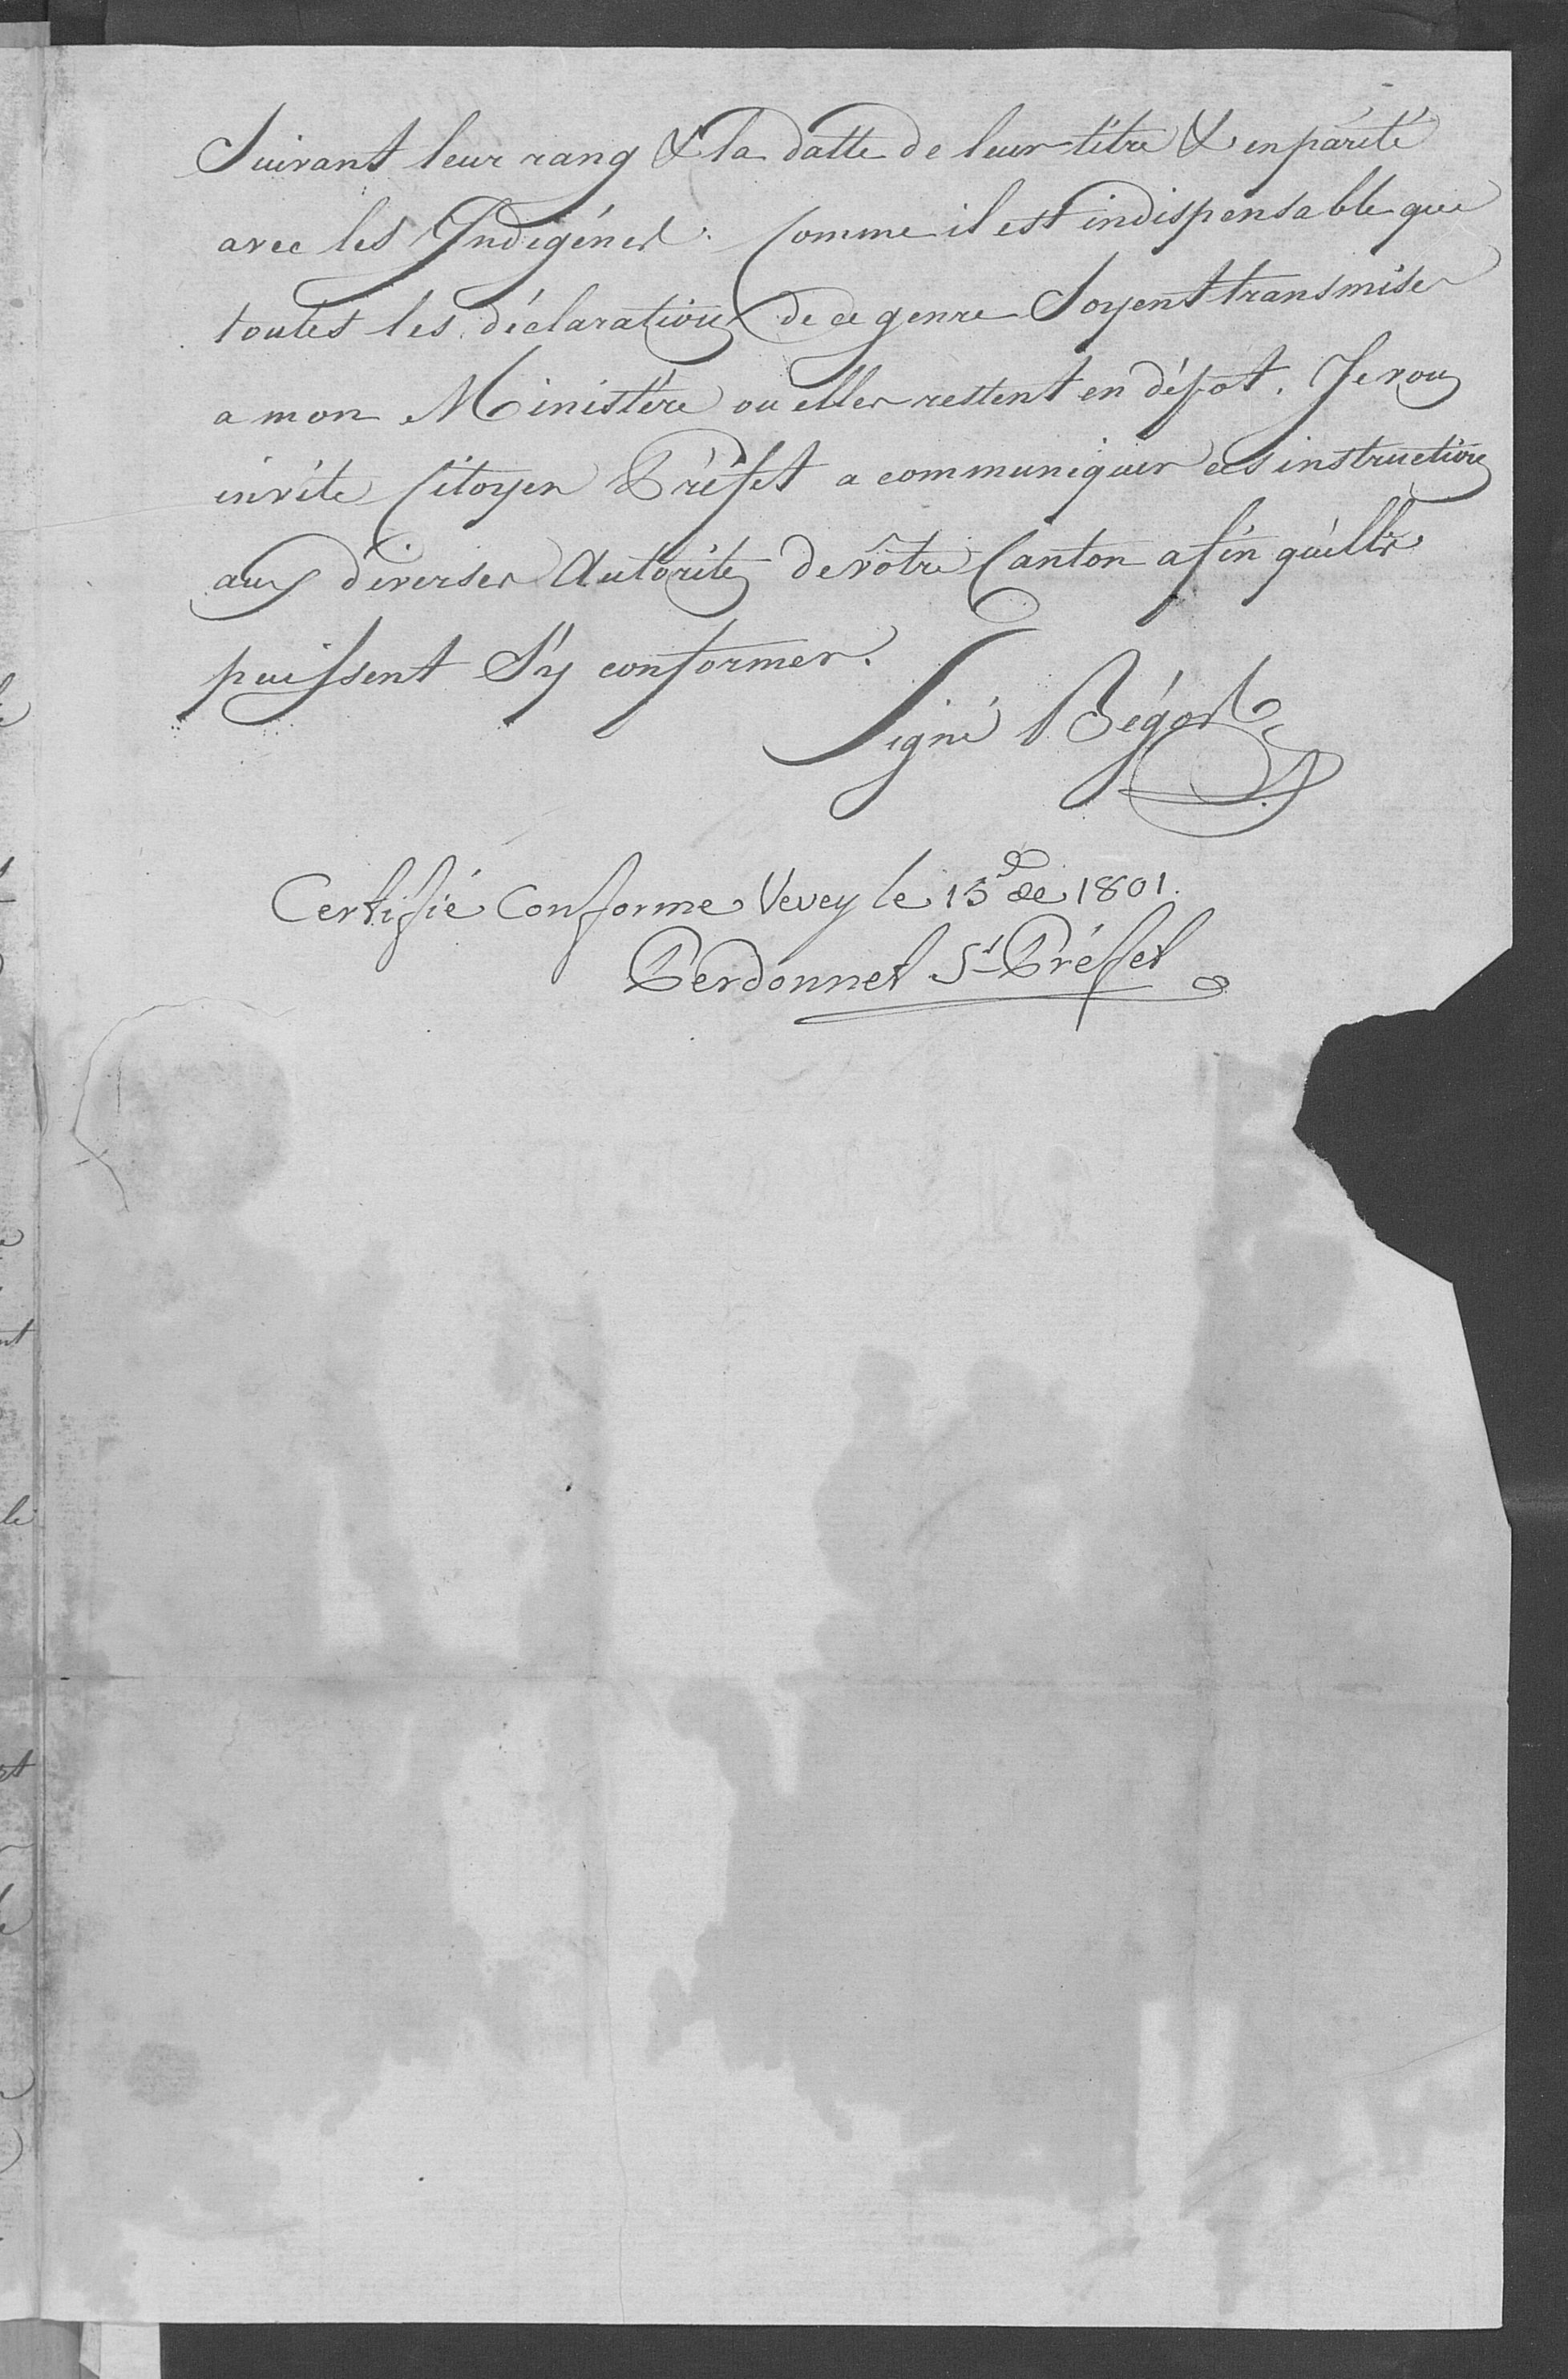 Suivant leur rang & la datte de leur titre & en parité
avec les Indigénes. Comme il est indispensable que
toutes les déclarations de ce genre Soyent transmises
a mon Ministère ou elles restent en dépot. Je vous
invite Citoyen Préfet a communiquer ces instructions
aux diverses Autorités de vôtre Canton afin qu'elles
puissent S'y conformer.
Signé Bégos
Certifié Conforme Vevey le 13 de 1801.
Perdonnet St Préffet